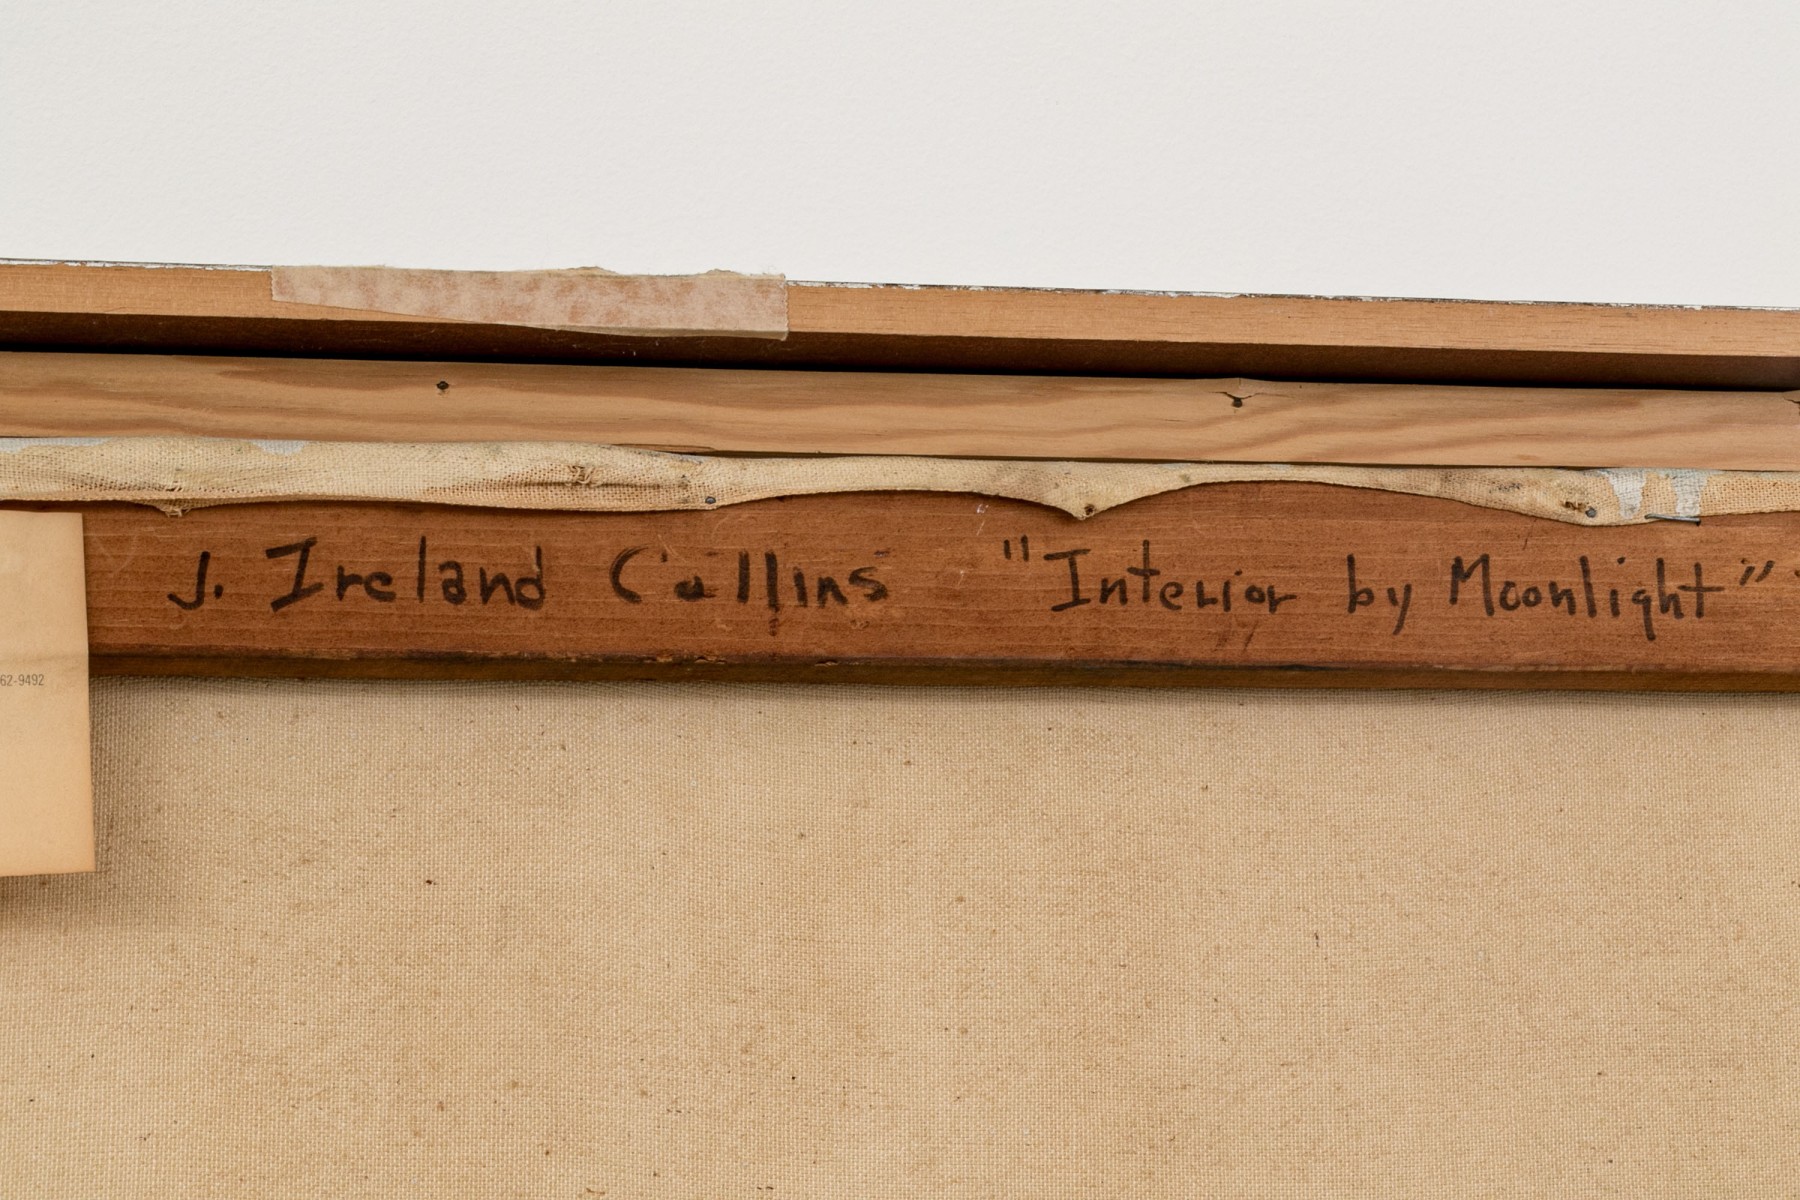 J. Ireland Collins "Interior by Moonlight"
62-9492